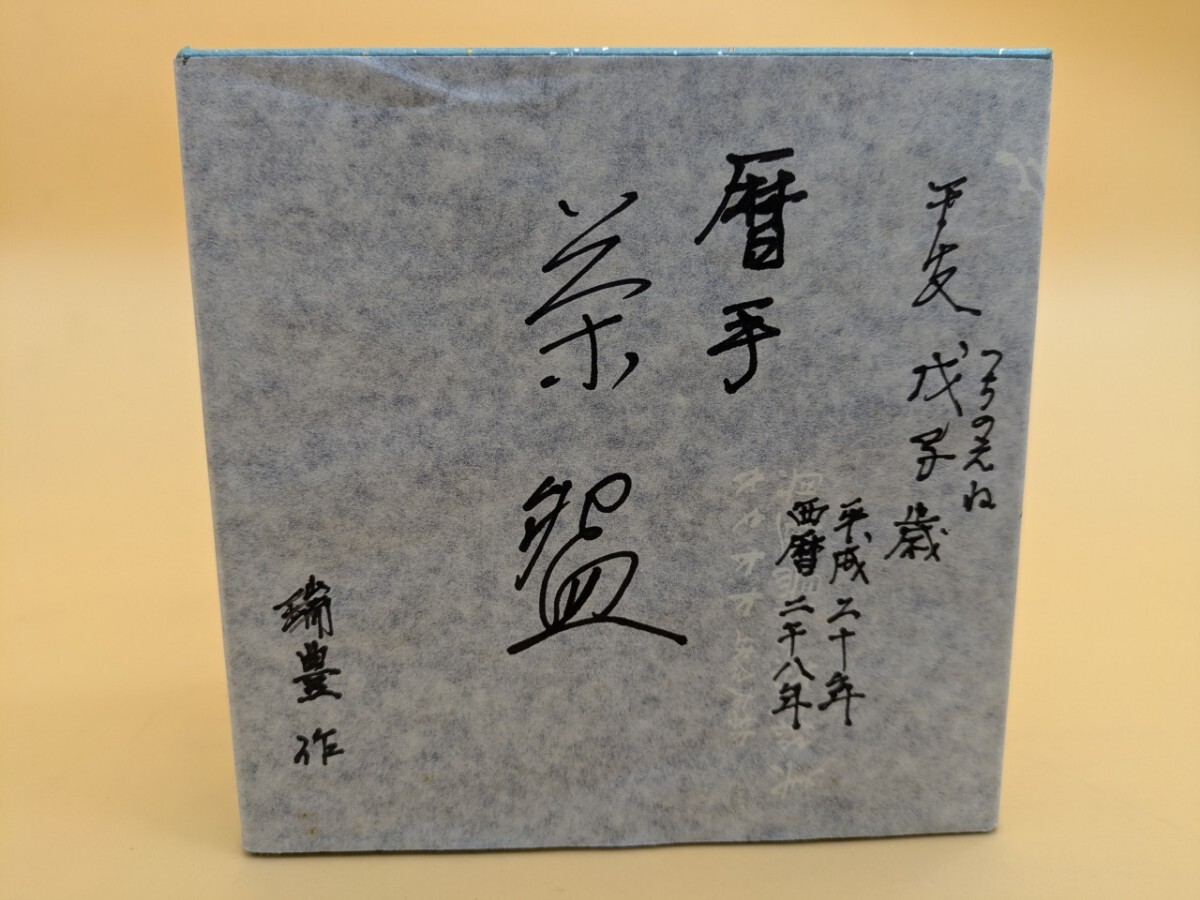 干支 戊子歳
つちのえね
平成二十年
西暦二千八年
暦手
茶盌
瑞豊作